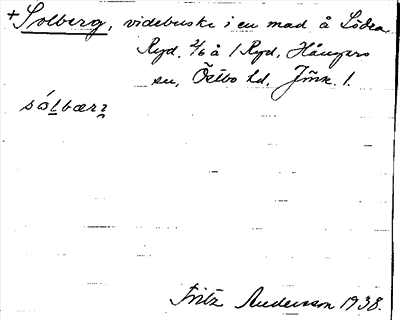 +Solberg, videbuske i en mad å Södra
Ryd. 2/6 å 1 Ryd, Hångers
sn, Östbo hd, Jönk. l.
sólbærɿ
Fritz Andersson 1938.